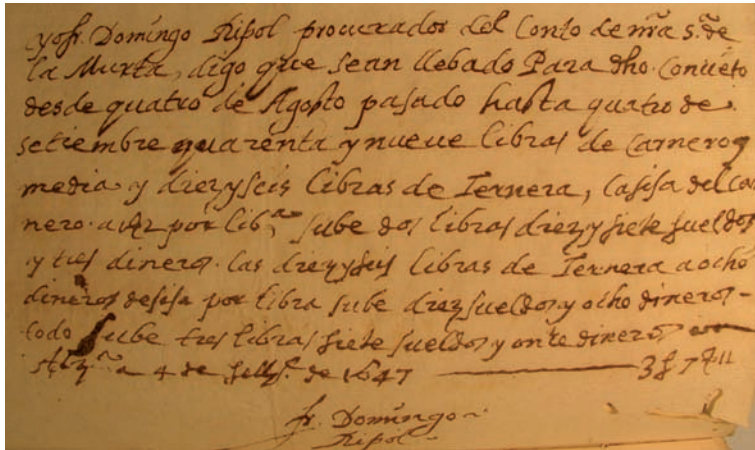 yo fr. Domingo Ripol procurador del Conto de nra sra de
la Murta, digo que sean llebado Para dho. Conueto
desde quatro de Agosto pasado hasta quatro de
setiembre quarenta y nueue libras de carnero y
media y diez y seis libras de Ternera, la sisa del car
nero a por lib.a sube dos libras diez y siete sueldos
y tres dineros. las diez y seis libras de Ternera a ocho
dineros de sisa por libra sube diez sueldos y ocho dineros
todo sube tres libras siete sueldos y onze dineros
a 4 de de 1647 3 7 11
fr. Domingo
Ripol